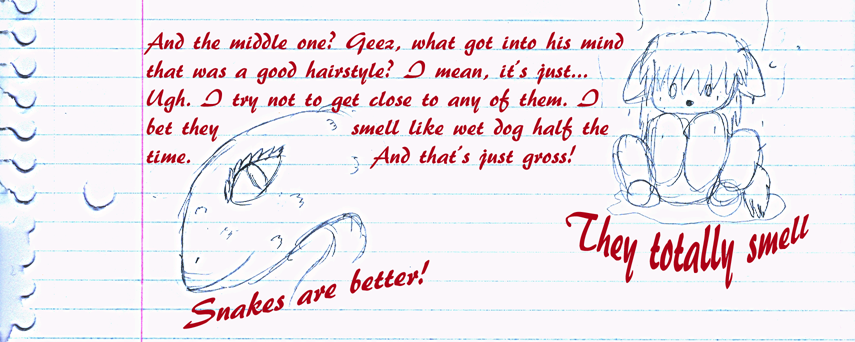 And the middle one? Geez, what got into his mind
that was a good hairstyle? I mean, it's just...
Ugh. I try not to get close to any of them. I
bet they smell like wet dog half the
time. And that's just gross!
They totally smell
Snakes are better!